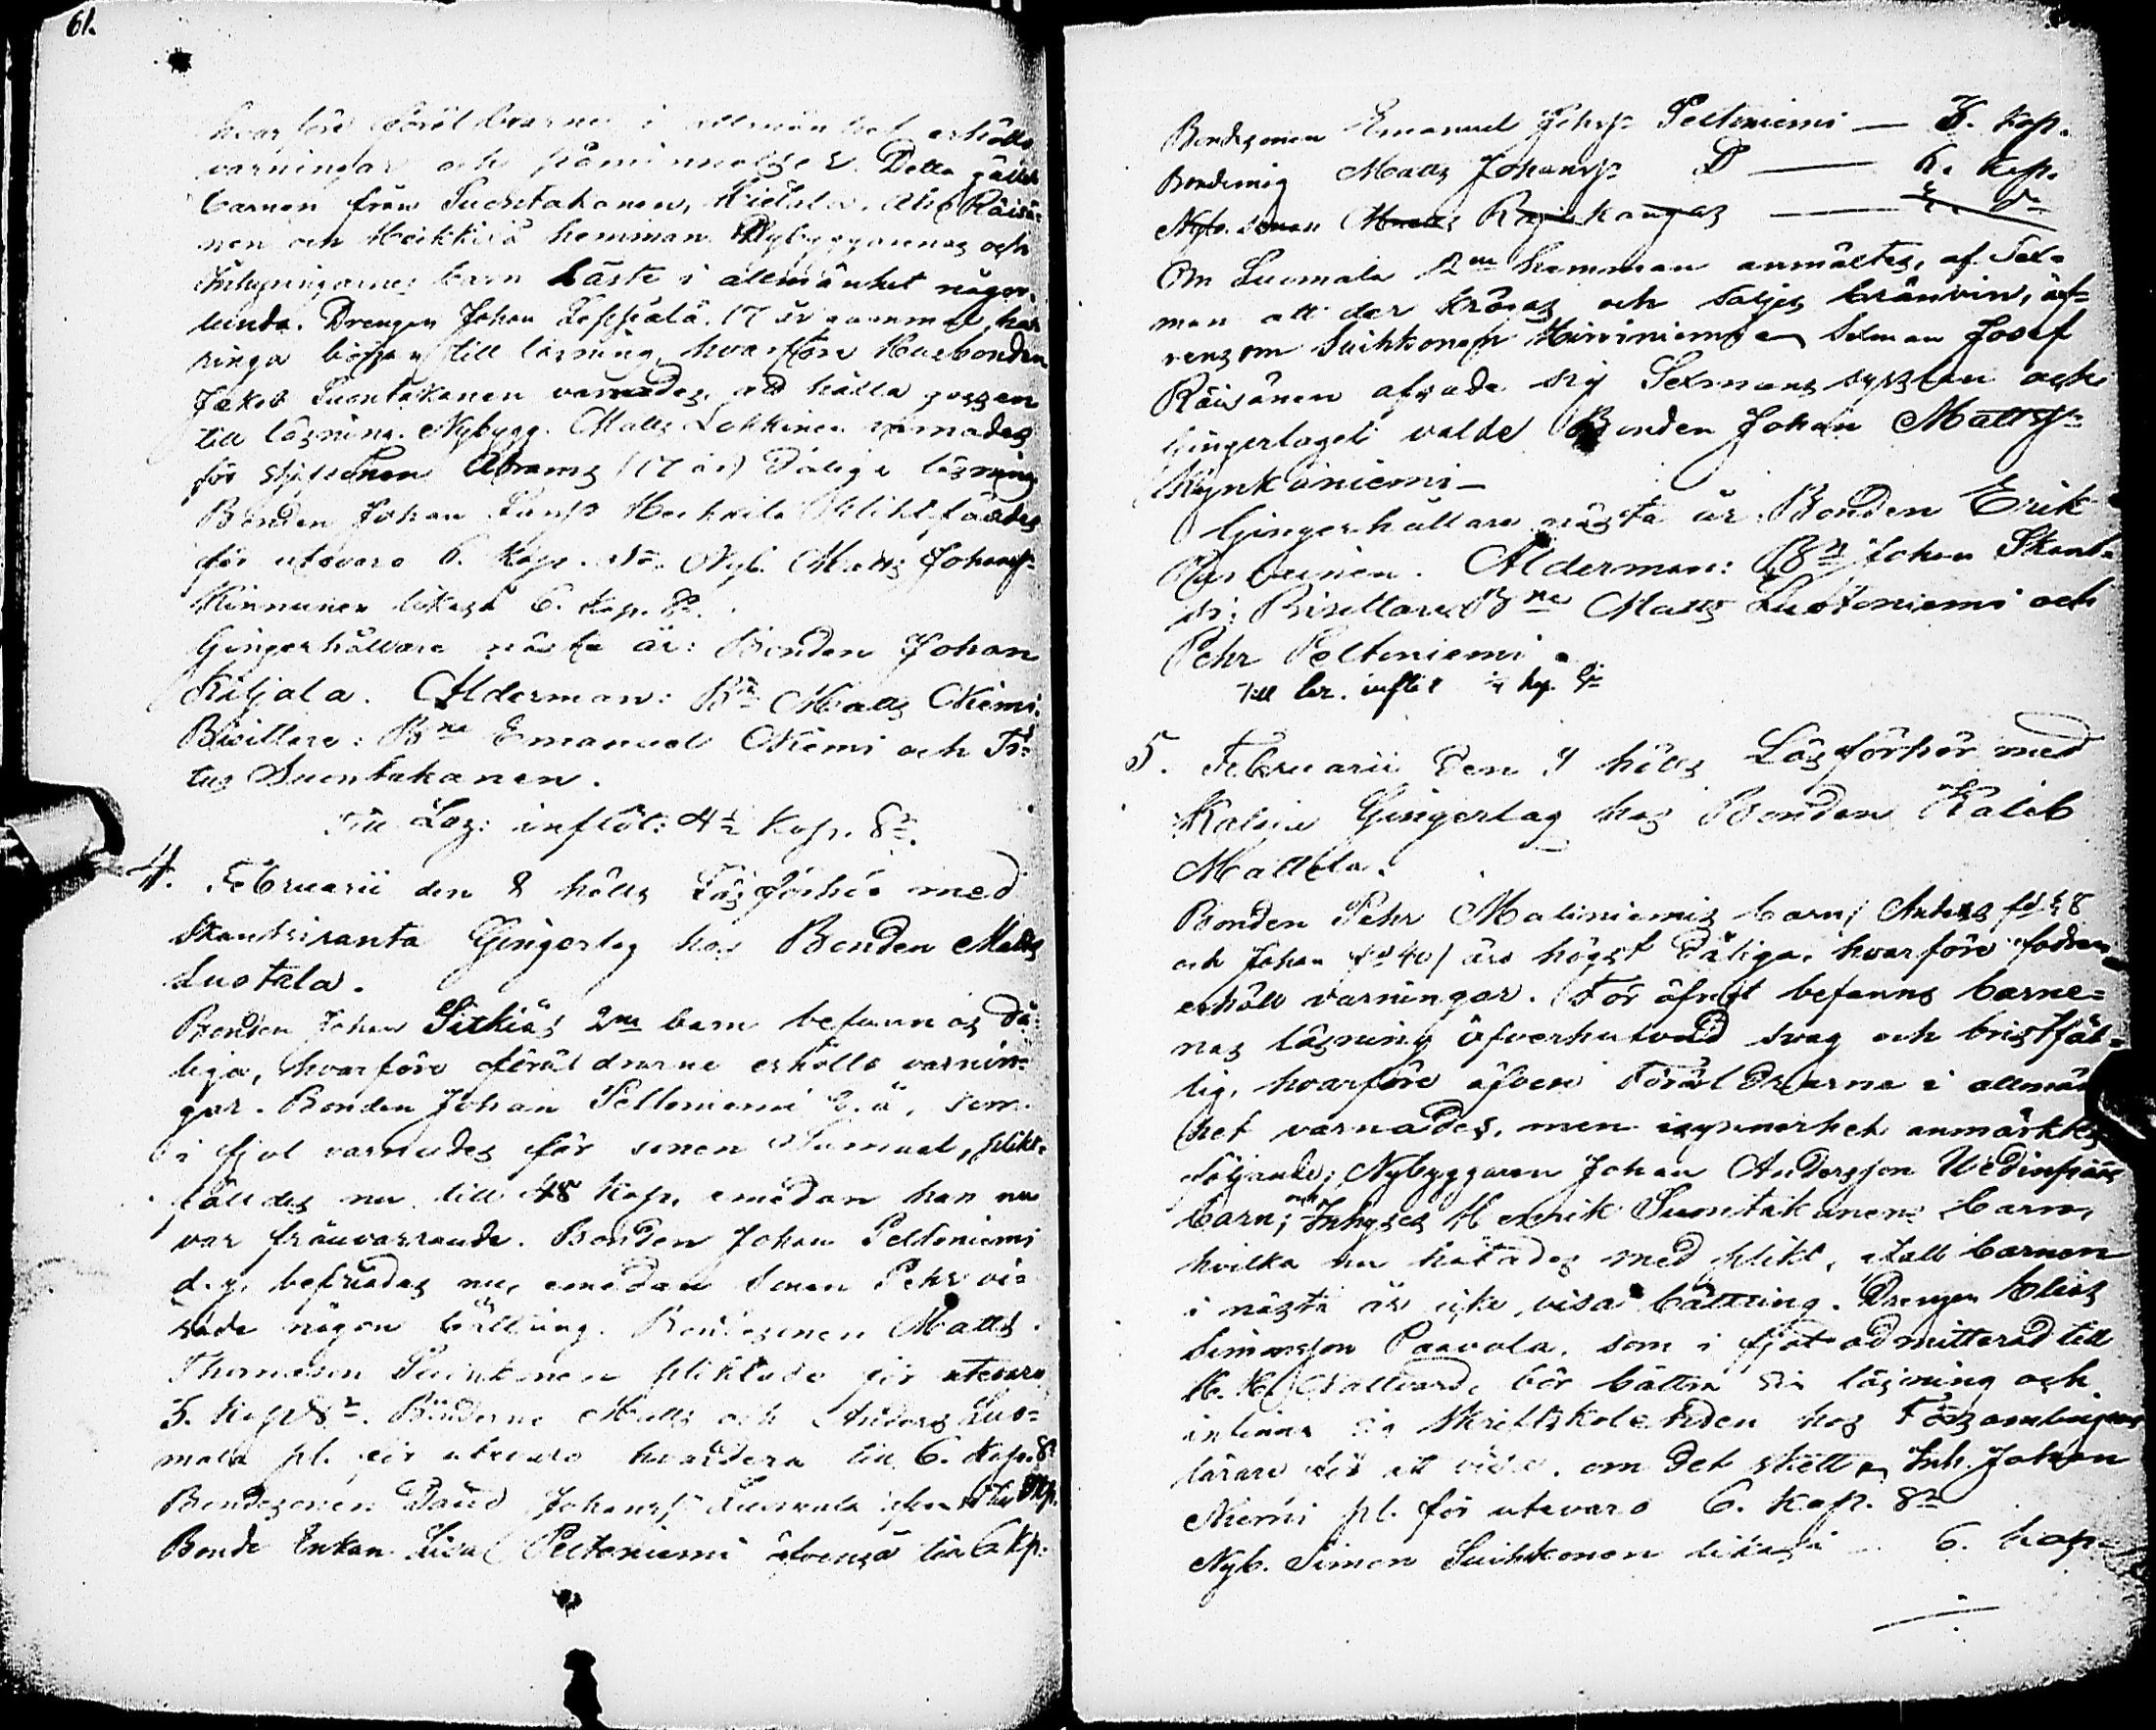 61.
hvarföre föräldrarne i allmänhet erhöllo
varningar och påminnelser. Detta gällde
barnen från Suontakanen, Kieksi, Räisä-
nen och Heikkilä hemman. Nybyggarenas och
Inhysingarnes barn läste i allmänhet någor-
lunda. Drengen Johan Leppälä, 17 år gammal, har
ringa böjen till läsning, hvarföre Husbonden
Jakob Suontakanen varnades, att hålla gossen
till läsning. Nybygg. Matts Lokkinen varnades
för styfsonen Abrams (17 år) dåliga läsning
Bonden Johan Heikkilä pliktfälldes
för utevaro 6. Kop. Nyb. Matts Johans.
Kinnunen likaså 6. Kop. Sr.
Gingerhållare nästa år: Bonden Johan
Kiljala. Ålderman: Bn Matts Niemi.
Bisittare: Bne Emanuel Niemi och Ti-
tus Suontakanen.
Till Läs: inflöt: 4½ Kop. Sr.
4. Februarii den 8 hölls Läsförhör med
Skantsiranta Gingerlag hos Bonden Matts
Luotela.
Bonden Johan Sitkiäs 2ne barn befunnos då-
liga, hvarföre föräldrarne erhöllo varnin-
gar. Bonden Johan Peltoniemi d. ä. som
i fjol varnades för sonen Samuel, plikt-
fälldes nu till 48 Kop. emedan han nu
var frånvarande. Bonden Johan Peltoniemi
d. y. befriades nu, emedan sonen Pehr vi-
sade någon bättring. Bondesonen Matts
Thomasson pliktade för utevaro
3. Kop. Sr. Bönderne Matts och Anders Luo-
mala pl. för utevaro hvardera till 6. Kop. Sr
Bondesonen David Johanss. Luomala
Bonde Enkan Lisa Peltoniemi äfvenså till 6 Kp.
Bondesonen Emanuel Johss. Peltoniemi — 3. Kop.
Bondemåg Matts Johanss. D — 6. Kop.
Nyb. sonen Matts Rajakangas —
Om Luomala 2ne hemman anmältes, af Sex-
man att der krögas och säljes bränvin, äf-
vensom Suikkonen Sexman Josef
Räisänen afsade sig Sexmans sysslan och
Gingerlaget valde Bonden Johan Mattss.
Kynkäniemi —
Gingerhållare nästa år: Bonden Erik
Ålderman: Bn Johan Skant-
si: Bisittare Bne Matts Luotoniemi och
Pehr Peltoniemi.
Till Lär. inflöt
5. Februarii den 9 hölls Läsförhör med
Gingerlag hos Bonden Kaleb
Mattila.
Bonden Pehr Matiniemis barn; Anders fd 38
och Johan fd 40) äro högst dåliga, hvarföre fadren
erhöll varningar. För öfrigt befanns barne-
nas läsning öfverhufvud svag och bristfäl-
lig, hvarföre äfven Föräldrarna i allmän-
het varnades, men isynnerhet anmärktes
följande; Nybyggaren Johan Andersson
barn; och Inhyses Henrik Suontakanens barn,
hvilka nu hotades med plikt, ifall barnen
i nästa år icke visa bättring. Drengen Elias
Simonsson Paavola, som i fjol admitterad till
H. H. Nattvard, bör bättra sin läsning och
inlinna sig Skriftskoletiden hos Församlingens
lärare för att visa, om det skett. Inh. Johan
Niemi pl. för utevaro 6. Kop. Sr
Nyb. Simon Suikkonen likaså — 6. Kop.